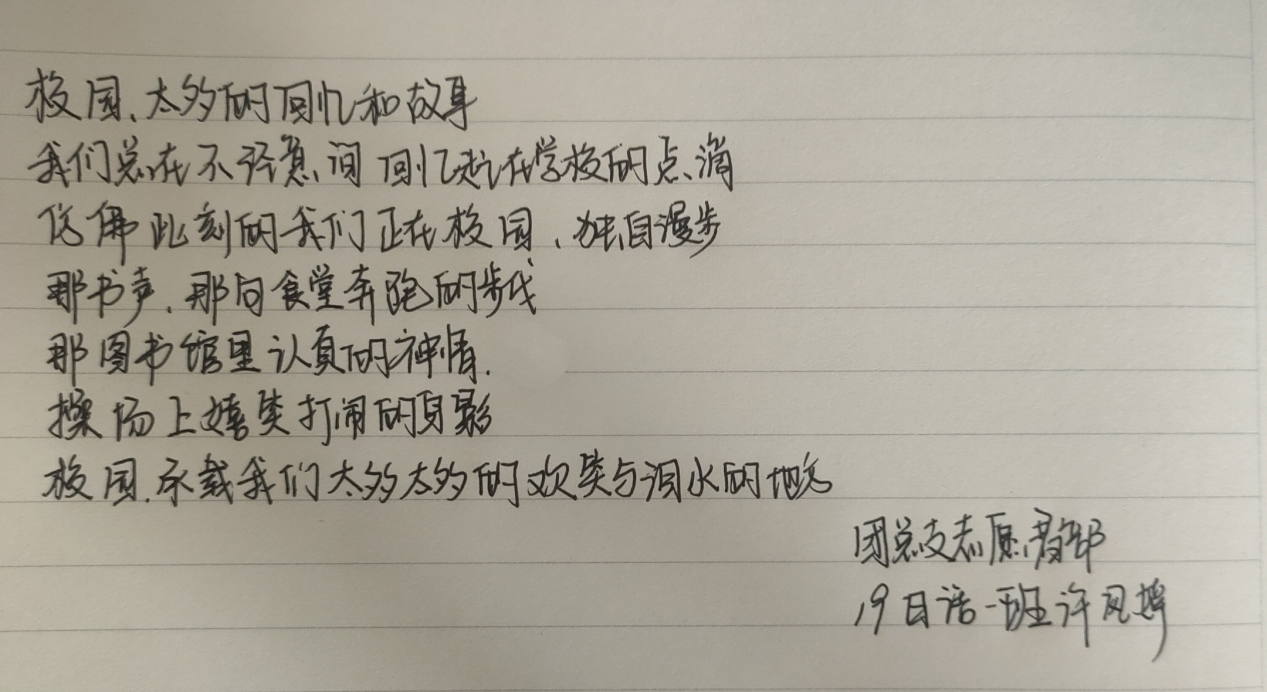 校园、太多的回忆和故事
我们总在不经意间回忆起在学校的点滴
仿佛此刻的我们正在校园、独自漫步
那书声、那向食堂奔跑的步伐
那图书馆里认真的神情、
操场上嬉笑打闹的身影
校园、承载我们太多太多的欢笑与泪水的地方
团总支志愿者部
19日语一班许凤